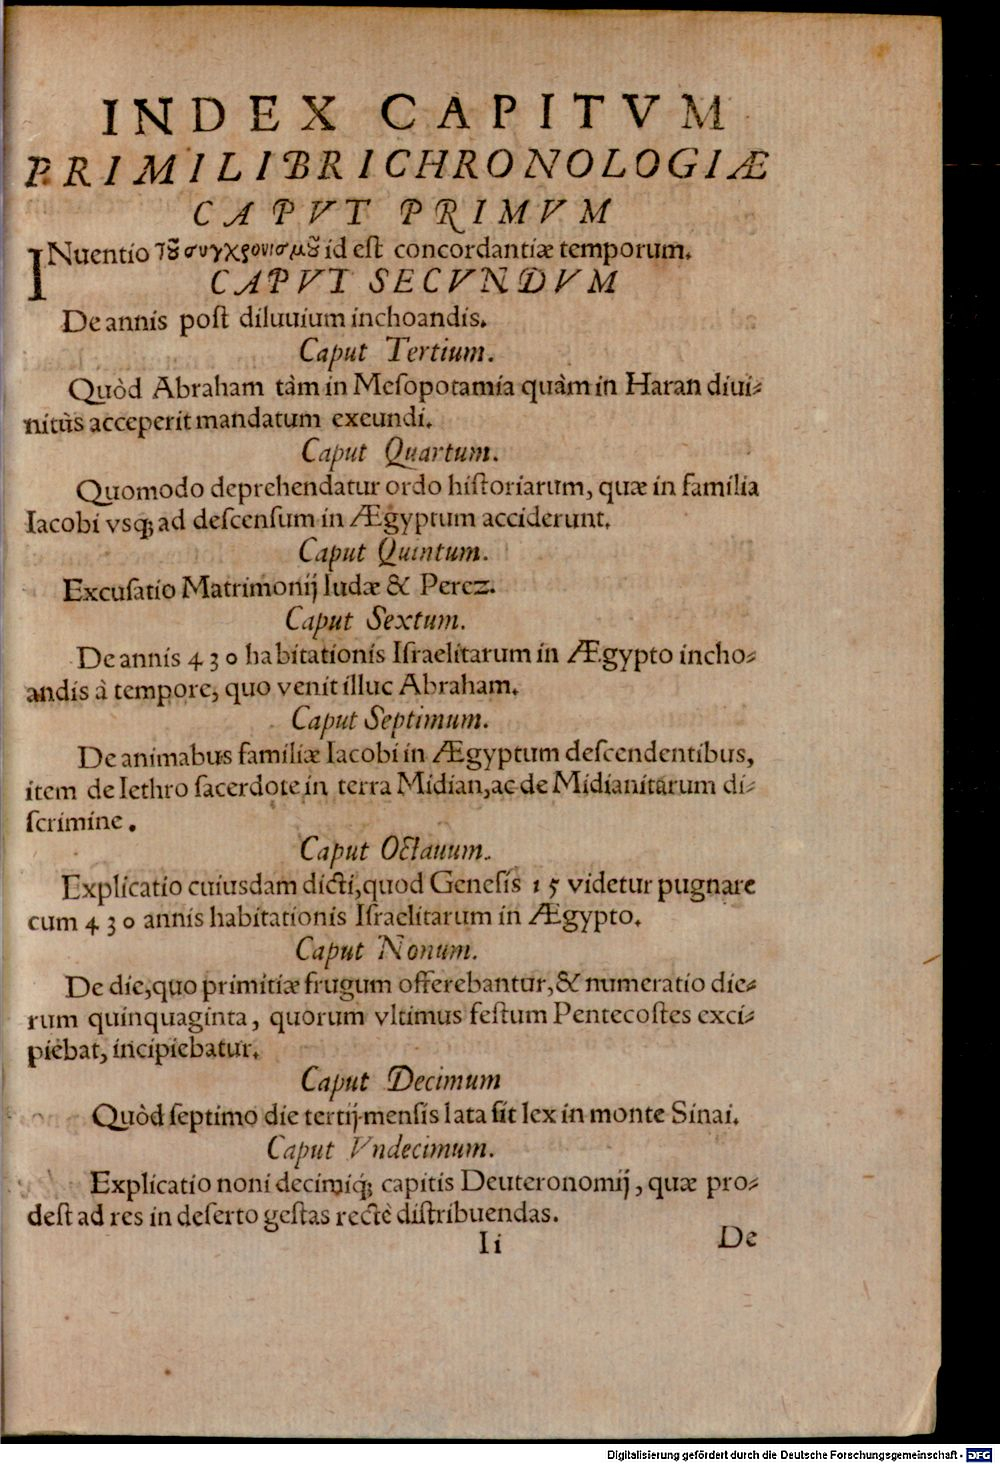 INDEX CAPITVM
PRIMI LIBRI CHRONOLOGIÆ
CAPVT PRIMVM
INuentio τȣ͂ συγχρονισμȣ͂ id est concordantiæ temporum.
CAPVT SECVNDVM
De annis poſt diluuium inchoandis.
Caput Tertium.
Quòd Abraham tàm in Meſopotamia quàm in Haran diui⸗
nitùs acceperit mandatum exeundi.
Caput Quartum.
Quomodo deprehendatur ordo hiſtoriarum, quæ in familia
Iacobi vsq; ad deſcenſum in Ægyptum acciderunt.
Caput Quintum.
Excuſatio Matrimonij Iudæ & Perez.
Caput Sextum.
De annis 430 habitationis Iſraelitarum in Ægypto incho⸗
andis à tempore, quo venit illuc Abraham.
Caput Septimum.
De animabus familiæ Iacobi in Ægyptum deſcendentibus,
item de Iethro ſacerdote in terra Midian, ac de Midianitarum di⸗
ſcrimine.
Caput Octauum.
Explicatio cuiusdam dicti, quod Geneſis 15 videtur pugnare
cum 430 annis habitationis Iſraelitarum in Ægypto.
Caput Nonum.
De die, quo primitiæ frugum offerebantur, & numeratio die⸗
rum quinquaginta, quorum vltimus feſtum Pentecoſtes exci⸗
piebat, incipiebatur.
Caput Decimum
Quòd ſeptimo die tertij menſis lata ſit lex in monte Sinai.
Caput Vndecimum.
Explicatio noni decimiq; capitis Deuteronomij, quæ pro⸗
deſt ad res in deſerto geſtas rectè diſtribuendas.
Ii
De
Digitalisierung gefördert durch die Deutsche Forschungsgemeinschaft - DFG